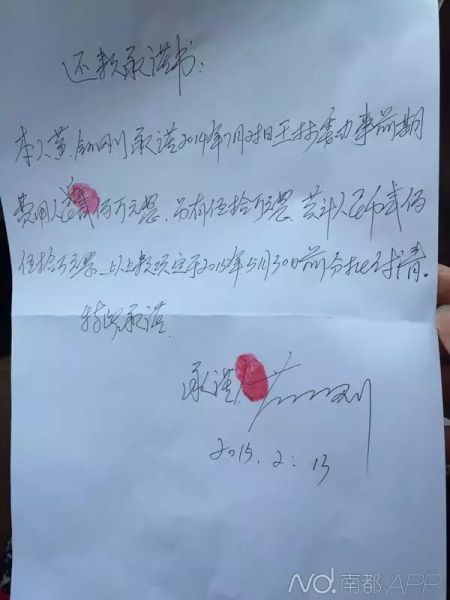 还款承诺书：
本人黄 刚承诺2014年7月 日王 委办事前期
费用人民 贰佰万元整，另有伍拾万元整，共计人民币贰佰
伍拾万元整，以上款项定于2015年5月30日前分批 清。
特此承诺。
承诺人
2015.2.13
南都APP